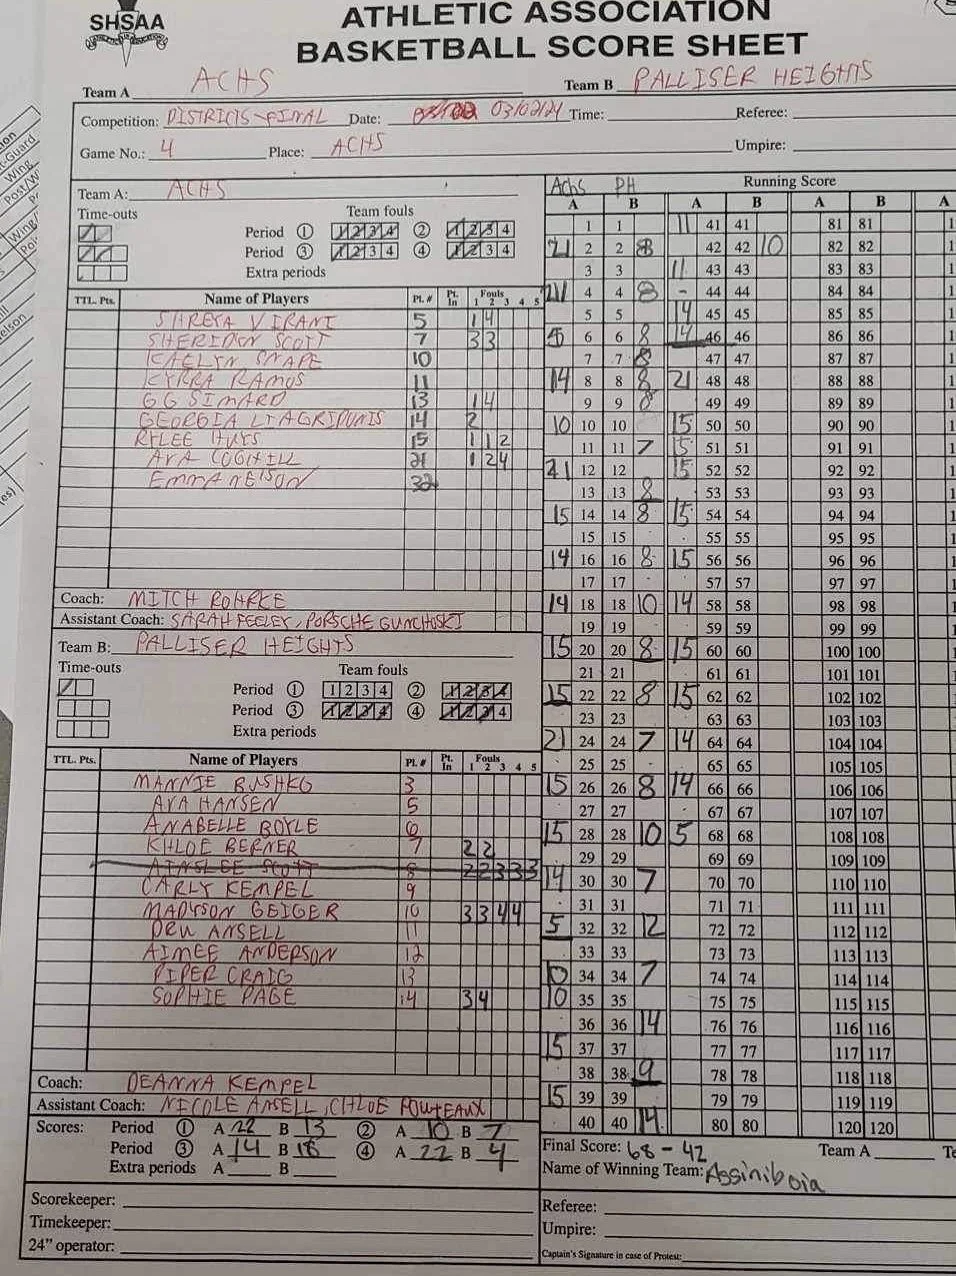 SHSAA
ATHLETIC ASSOCIATION
BASKETBALL SCORE SHEET
Team A ACHS Team B PALLISER HEIGHTS
Competition: DISTRICTS-FINAL Date: 03/02/24 Time: Referee:
Game No.: 4 Place: ACHS Umpire:
Team A: ACHS
Time-outs Team fouls
Period ① 1 2 3 4 ② 1 2 3 4
Period ③ 1 2 3 4 ④ 1 2 3 4
Extra periods
TTL. Pts. Name of Players Pl. # Pt. In Fouls 1 2 3 4 5
SHREYA VIRANI 5 1 4
SHERIDON SCOTT 7 3 3
KAELYN SNAPE 10
KYRRA RAMOS 11
GG SIMARD 13 1 4
GEORGIA LIAGRIDONIS 14 2
RYLEE HUYS 15 1 1 2
AVA COGHILL 21 1 2 4
EMMA NELSON 32
Coach: MITCH ROHRKE
Assistant Coach: SARAH FEELEY, PORSCHE GUNCHOSKI
Team B: PALLISER HEIGHTS
Time-outs Team fouls
Period ① 1 2 3 4 ② 1 2 3 4
Period ③ 1 2 3 4 ④ 1 2 3 4
Extra periods
TTL. Pts. Name of Players Pl. # Pt. In Fouls 1 2 3 4 5
MANNIE BUSHKO 3
AVA HANSEN 5
ANABELLE BOYLE 6
KHLOE BERNER 7 2 2
AINSLEE SCOTT 8 2 2 3 3 3
CARLY KEMPEL 9
MADYSON GEIGER 10 3 3 4 4
DRU ANSELL 11
AIMEE ANDERSON 12
PIPER CRAIG 13
SOPHIE PAGE 14 3 4
Coach: DEANNA KEMPEL
Assistant Coach: NICOLE ANSELL, CHLOE POUTEAUX
Scores: Period ① A 22 B 13 ② A 10 B 7
Period ③ A 14 B 18 ④ A 22 B 4
Extra periods A B
Scorekeeper:
Timekeeper:
24" operator:
Achs PH Running Score
A B A B A B A
1 1 11 41 41 81 81
21 2 2 8 42 42 10 82 82
3 3 11 43 43 83 83
21 4 4 8 - 44 44 84 84
5 5 14 45 45 85 85
5 6 6 8 14 46 46 86 86
7 7 8 47 47 87 87
14 8 8 8 21 48 48 88 88
9 9 8 49 49 89 89
10 10 10 15 50 50 90 90
11 11 7 15 51 51 91 91
21 12 12 15 52 52 92 92
13 13 8 53 53 93 93
15 14 14 8 15 54 54 94 94
15 15 55 55 95 95
14 16 16 8 15 56 56 96 96
17 17 57 57 97 97
14 18 18 10 14 58 58 98 98
19 19 59 59 99 99
15 20 20 8 15 60 60 100 100
21 21 61 61 101 101
15 22 22 8 15 62 62 102 102
23 23 63 63 103 103
21 24 24 7 14 64 64 104 104
25 25 65 65 105 105
15 26 26 8 14 66 66 106 106
27 27 67 67 107 107
15 28 28 10 5 68 68 108 108
29 29 69 69 109 109
14 30 30 7 70 70 110 110
31 31 71 71 111 111
5 32 32 12 72 72 112 112
33 33 73 73 113 113
10 34 34 7 74 74 114 114
10 35 35 75 75 115 115
36 36 14 76 76 116 116
15 37 37 77 77 117 117
38 38 9 78 78 118 118
15 39 39 79 79 119 119
40 40 14 80 80 120 120
Final Score: 68 - 42 Team A
Name of Winning Team: Assiniboia
Referee:
Umpire:
Captain's Signature in case of Protest: